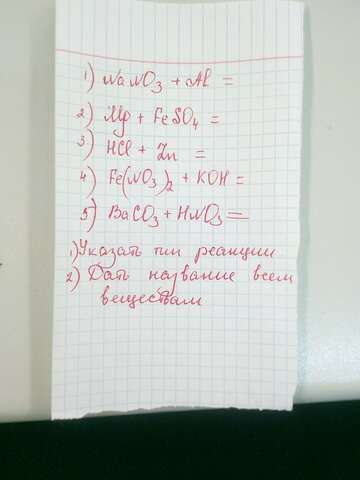 1) NaNO3 + Al =
2) Mg + FeSO4 =
3) HCl + Zn =
4) Fe(NO3)2 + KOH =
5) BaCO3 + HNO3 =
1) Указать тип реакции
2) Дать название всем
веществам